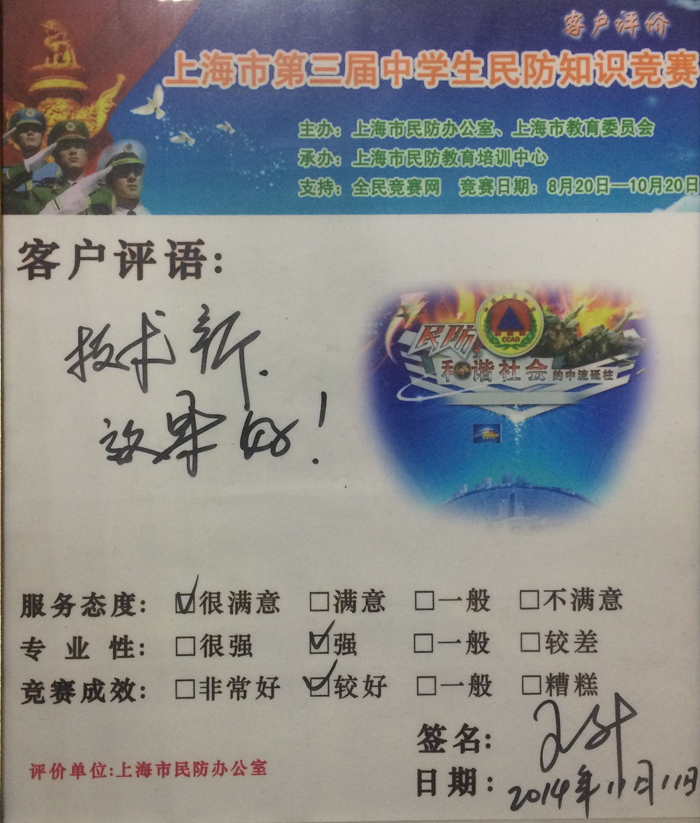 客户评价
上海市第三届中学生民防知识竞赛
主办：上海市民防办公室、上海市教育委员会
承办：上海市民防教育培训中心
支持：全民竞赛网 竞赛日期：8月20日—10月20日
客户评语：
技术新.
效果好！
CCAD
民防
和谐社会的中流砥柱
服务态度： ☑很满意 □满意 □一般 □不满意
专业性： □很强 ☑强 □一般 □较差
竞赛成效： □非常好 ☑较好 □一般 □糟糕
签名：
评价单位:上海市民防办公室
日期：2014年11月11日